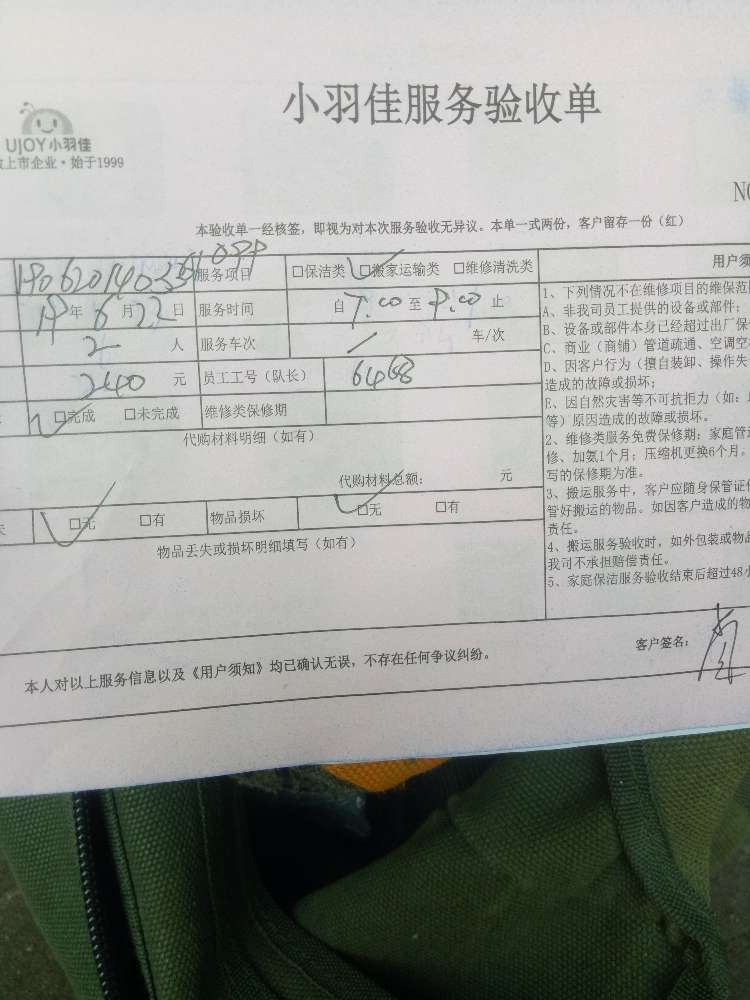 小羽佳服务验收单
UJOY小羽佳
上市企业·始于1999
NO
本验收单一经核签，即视为对本次服务验收无异议。本单一式两份，客户留存一份（红）
服务项目 □保洁类 □搬家运输类 □维修清洗类
19年6月22日 服务时间 自 至 止
2人 服务车次 / 车/次
240元 员工工号（队长） 6468
□完成 □未完成 维修类保修期
代购材料明细（如有）
代购材料总额： 元
失 □无 □有 物品损坏 □无 □有
物品丢失或损坏明细填写（如有）
本人对以上服务信息以及《用户须知》均已确认无误，不存在任何争议纠纷。
客户签名：
用户须
1、下列情况不在维修项目的维保范
A、非我司员工提供的设备或部件；
B、设备或部件本身已经超过出厂保
C、商业（商铺）管道疏通、空调空
D、因客户行为（擅自装卸、操作失
造成的故障或损坏；
E、因自然灾害等不可抗拒力（如：
等）原因造成的故障或损坏。
2、维修类服务免费保修期：家庭管
修、加氨1个月；压缩机更换6个月。
写的保修期为准。
3、搬运服务中，客户应随身保管证
管好搬运的物品。如因客户造成的物
责任。
4、搬运服务验收时，如外包装或物品
我司不承担赔偿责任。
5、家庭保洁服务验收结束后超过48小